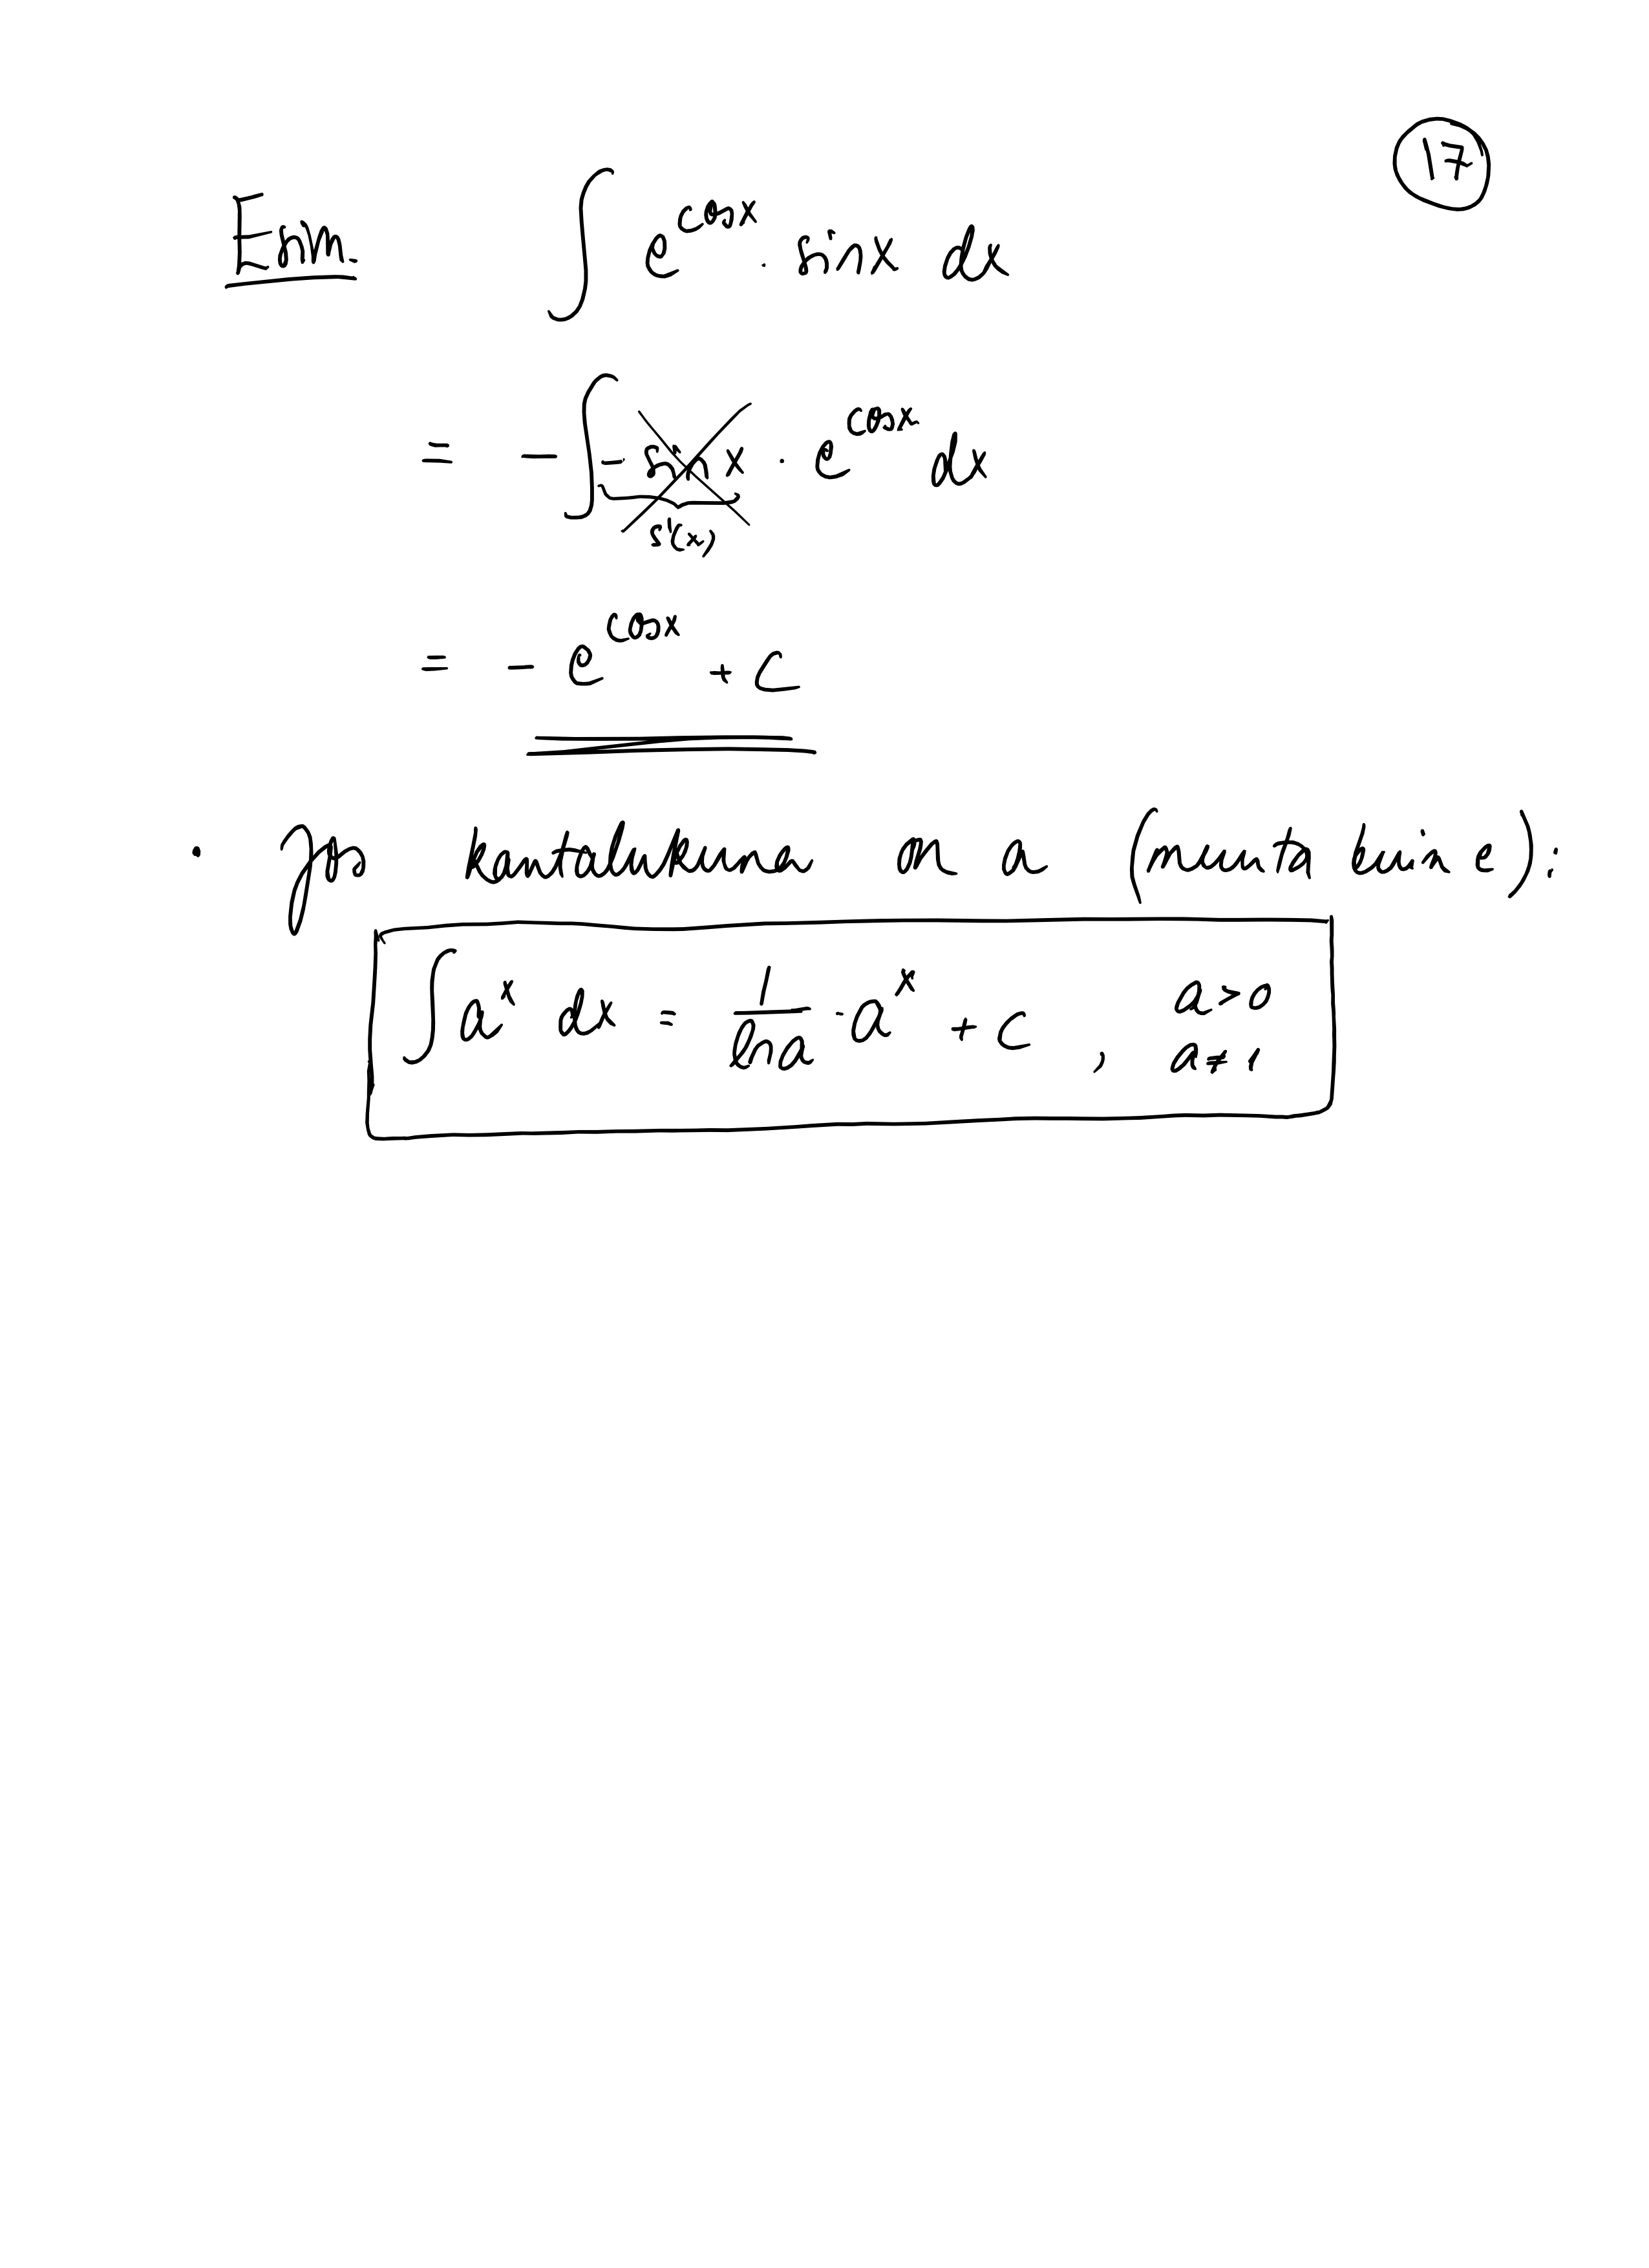 17
Esim. ∫ e^{cosx} · sinx dx
= - ∫ - sin x · e^{cosx} dx
s'(x)
= - e^{cosx} + C
· Jos kantalukuna on a (muuta kuin e):
∫ a^x dx = \frac{1}{ln a} · a^x + C , a>0
a≠1